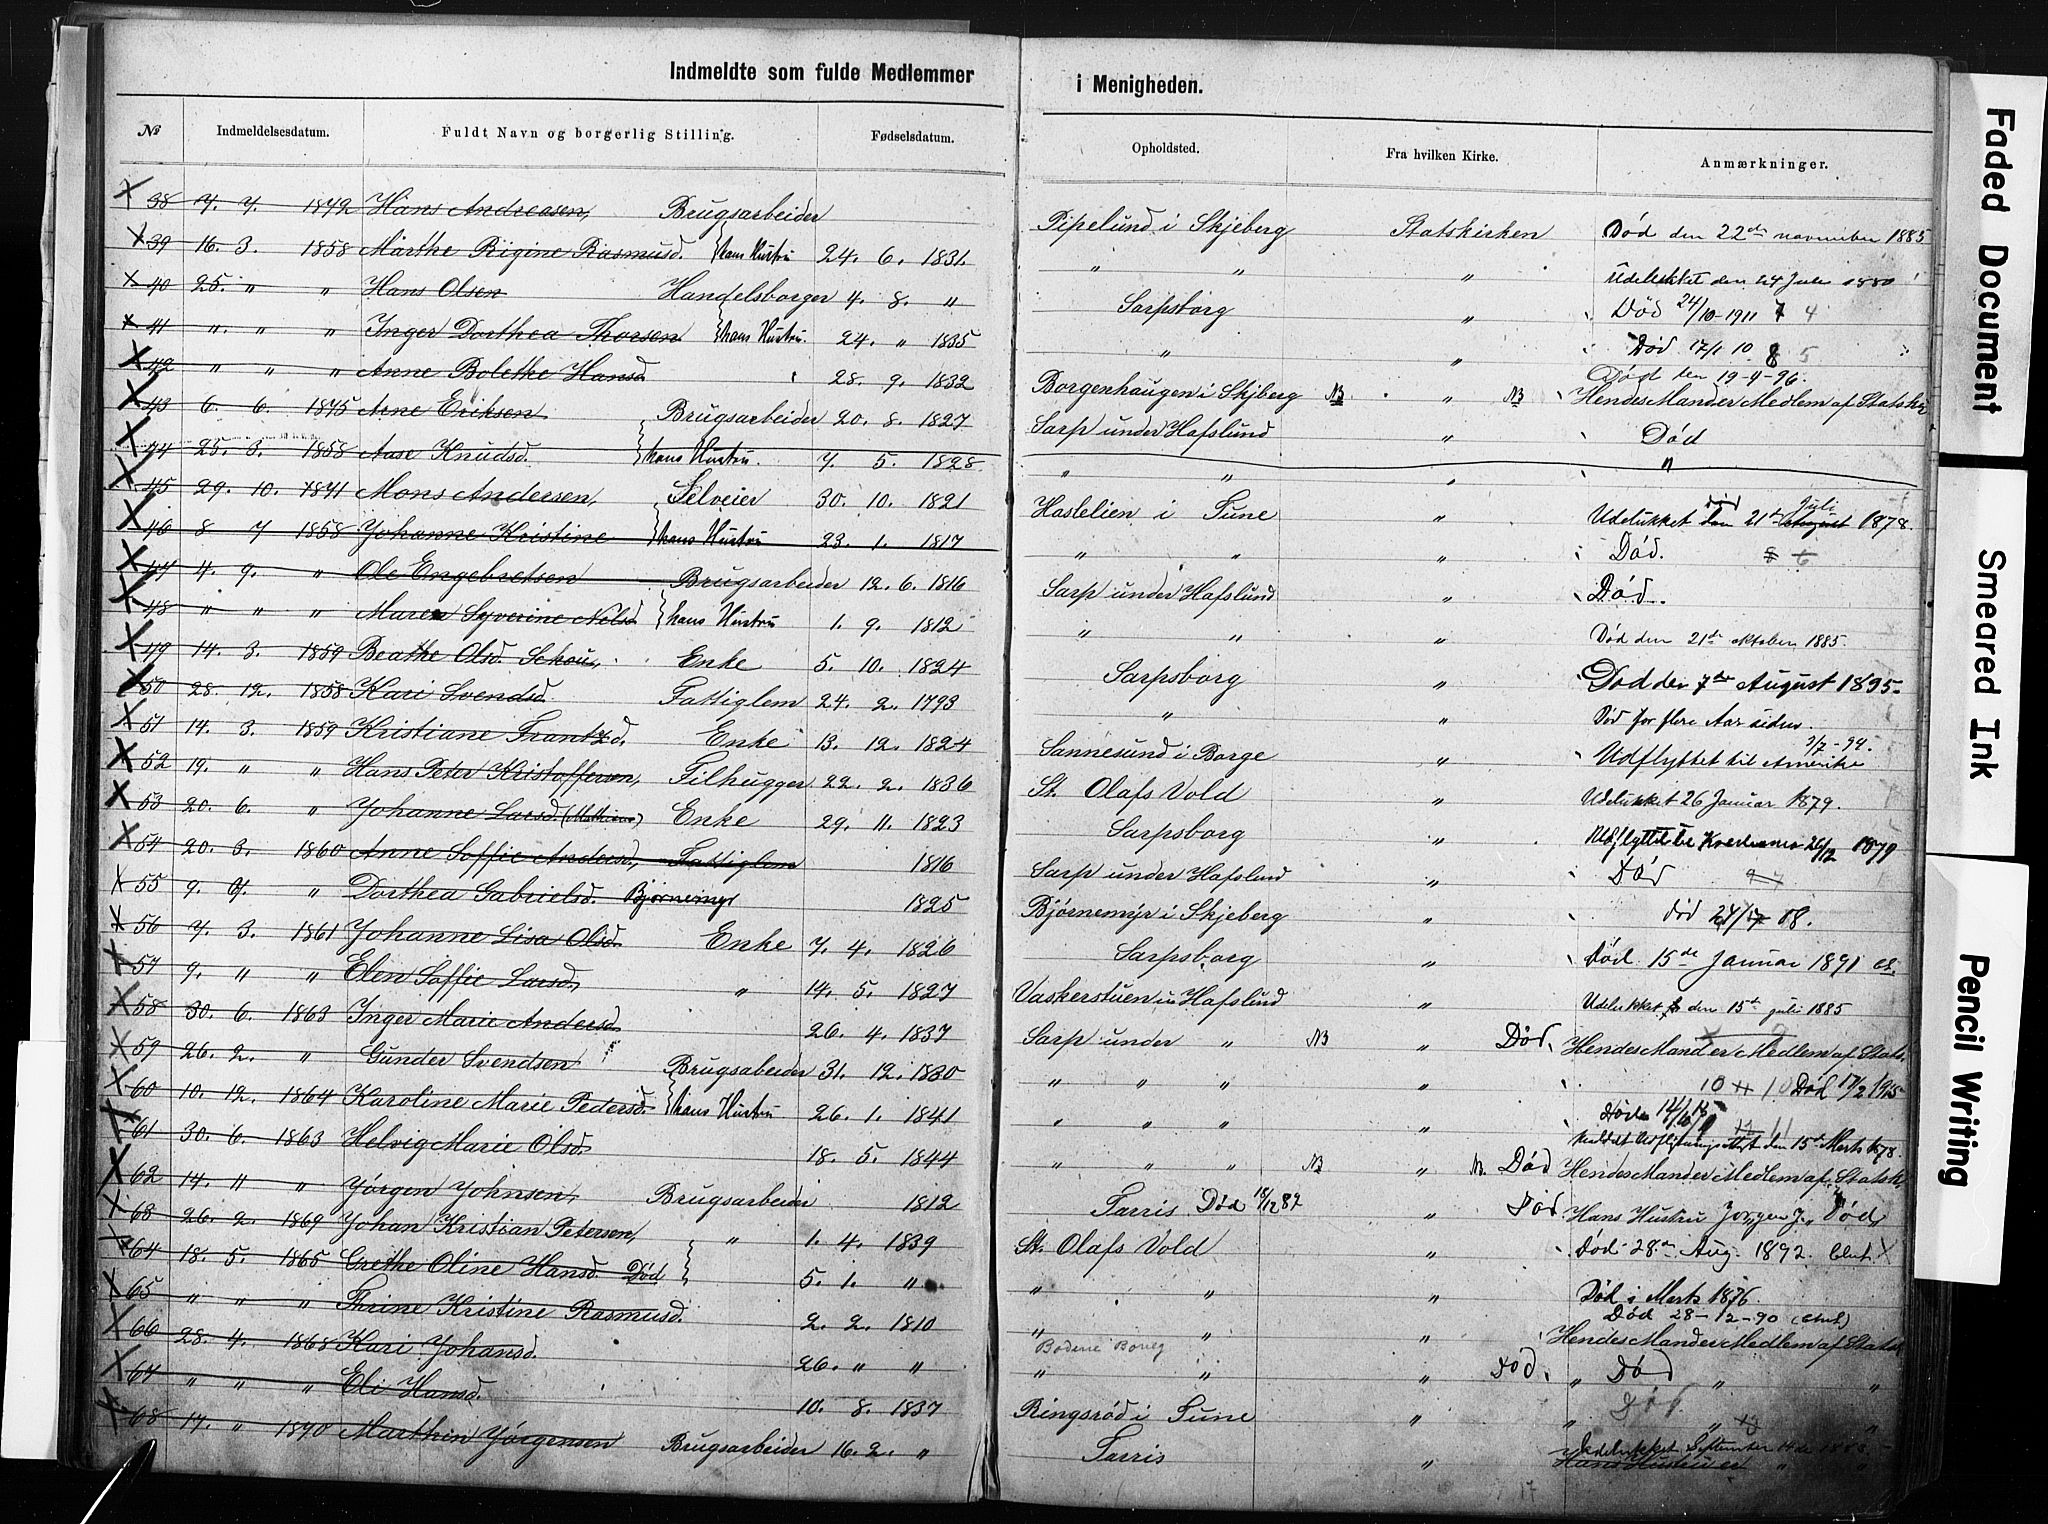 Indmeldte som fulde Medlemmer i Menigheden.
№ Indmeldelsesdatum. Fuldt Navn og borgerlig Stilling. Fødselsdatum. Opholdsted. Fra hvilken Kirke. Anmærkninger.
38 7. 7. 1872 Hans Andreasen, Brugsarbeider Pipelund i Skjeberg Statskirken Død den 22de november 1885
39 16. 3. 1858 Marthe Rigine Rasmusd. hans Hustru 24. 6. 1831. " " " Udelukket den 24 Juli 1880
40 25. " " Hans Olsen Handelsborger 4. 8. " Sarpsborg " Død 24/10-1911 4
41 " " " Inger Dorthea Thorsen hans Hustru. 24. " 1835 " " Død 17/1 10 8 5
42 " " " Anne Bolethe Hansd 28. 9. 1832 Borgenhaugen i Skjberg NB " NB Død den 19-4-96. Hendes Mand er Medlem af Statski
43 6. 6. 1875 Arne Eriksen Brugsarbeider 20. 8. 1827 Sarp under Hafslund " Død
44 25. 3. 1858 Aase Knudsd. hans Hustru. 7. 5. 1828 " " " "
45 29. 10. 1871 Mons Andersen, Selveier 30. 10. 1821 Haslelien i Tune " Udelukket den 21de August Juli 1878. død
46 8 7 1858 Johanne Kristine hans Hustru 23. 1. 1817 " " " Død. 8 6
47 4. 9. " Ole Engebretsen Brugsarbeider 12. 6. 1816 Sarp under Hafslund " Død.
48 " " " Maren Syverine Nilsd hans Hustru 1. 9. 1812 " " " Død den 21de oktober 1885.
49 14. 3. 1859 Beathe Olsd. Schou, Enke 5. 10. 1824 Sarpsborg " Død den 7de August 1895
50 28. 12. 1858 Kari Svendsd. Fattiglem 24. 2. 1793 " " Død for flere Aar siden.
51 14. 3. 1859 Kristiane Frantzd. Enke 13. 12. 1824 Sannesund i Borge " Udflyttet til Amerika 3/7-94.
52 19. " " Hans Peter Kristoffersen, Filhugger 22. 2. 1836 St. Olafs Vold " Udelukket 26 Januar 1879.
53 20. 6. " Johanne Larsd. Enke 29. 11. 1823 Sarpsborg " Udflyttet til 26/12 1879
54 20. 3. 1860 Anne Soffie Andersd., Fattiglem 1816 Sarp under Hafslund " Død 7
55 9. 9. " Dorthea Gabrielsd. Bjørnemyr 1825 Bjørnemyr i Skjeberg " død 24/12 08.
56 7. 3. 1861 Johanne Lisa Olsd. Enke 7. 4. 1826 Sarpsborg " Død 15de Januar 1891
57 9. " " Elen Soffie Larsd. " 14. 5. 1827 Vaskerstuen u Hafslund " Udelukket den 15de juli 1885
58 30. 6. 1863 Inger Marie Andersd 26. 4. 1837 Sarp under " NB " Død. Hendes Mand er Medlem af Stats.
59 26. 2. " Gunder Svendsen Brugsabeider 31. 12. 1830 " " " " 10 11 10 Død 17/2 1915
60 10. 12. 1864 Karoline Marie Pedersd hans Hustru 26. 1. 1841 " " " " Døde 12 11
61 30. 6. 1863 Helvig Marie Olsd. 18. 5. 1844 " " " NB " NB. Død Meldt Udflytning den 15de Marts 1878. Hendes Mand er Medlem af Statsk
62 14. " " Jørgen Johnsen, Brugsarbeider 1812 Tarris Død 18/12 87 " Død Hans Hustru Jørgen J. Død
63 26. 2. 1869 Johan Kristian Petersen, " 1. 4. 1839 St. Olafs Vold " Død 28de Aug. 1892.
64 18. 5. 1865 Grethe Oline Hansd. Død 5. 1. " " " " Død i Marts 1876
65 " " " Thrine Kristine Rasmusd. 2. 2. 1810 " " " Død 28-12-90 Hendes Mand er Medlem af Statsk
66 28. 4. 1868 Kari Johansd. 26. " " Bodene Borreg " " " Død. " Død " "
67 " " " Eli Hansd. 10. 8. 1837 Ringsrød i Tune " " Død " "
68 17. " 1870 Marthin Jørgensen Brugsarbeider 16. 2. " Tarris " Udelukket September 14de Hans Hustru er "
17
Faded Document
Smeared Ink
Pencil Writing